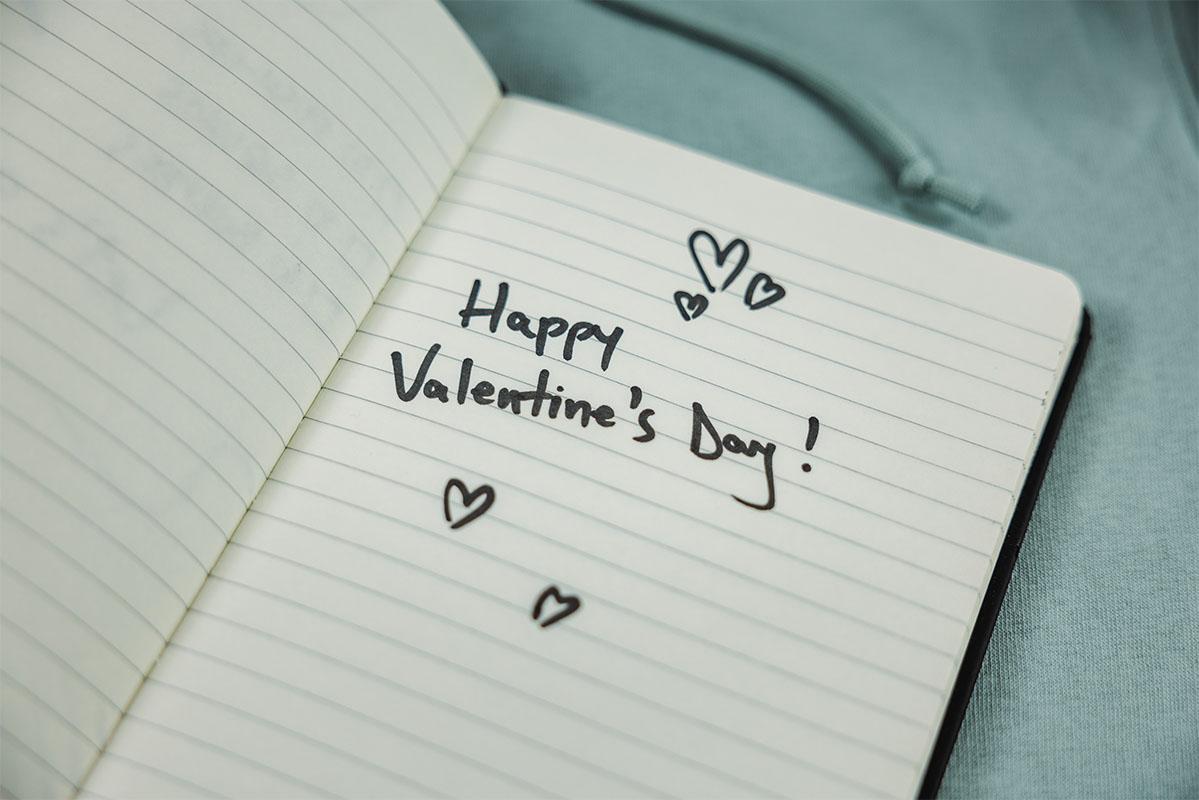 Happy
Valentine's Day!